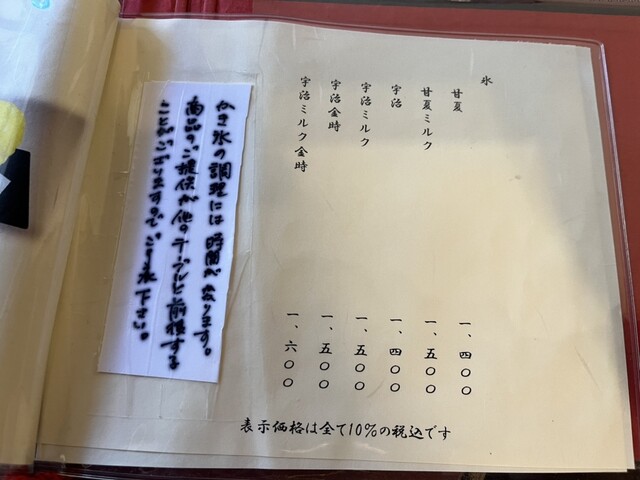 氷
甘夏 一、四〇〇
甘夏ミルク 一、五〇〇
宇治 一、四〇〇
宇治ミルク 一、五〇〇
宇治金時 一、五〇〇
宇治ミルク金時 一、六〇〇
かき氷の調理には時間が必要です。
商品のご提供が他のテーブルと前後する
ことがございますのでご了承下さい。
表示価格は全て10%の税込です